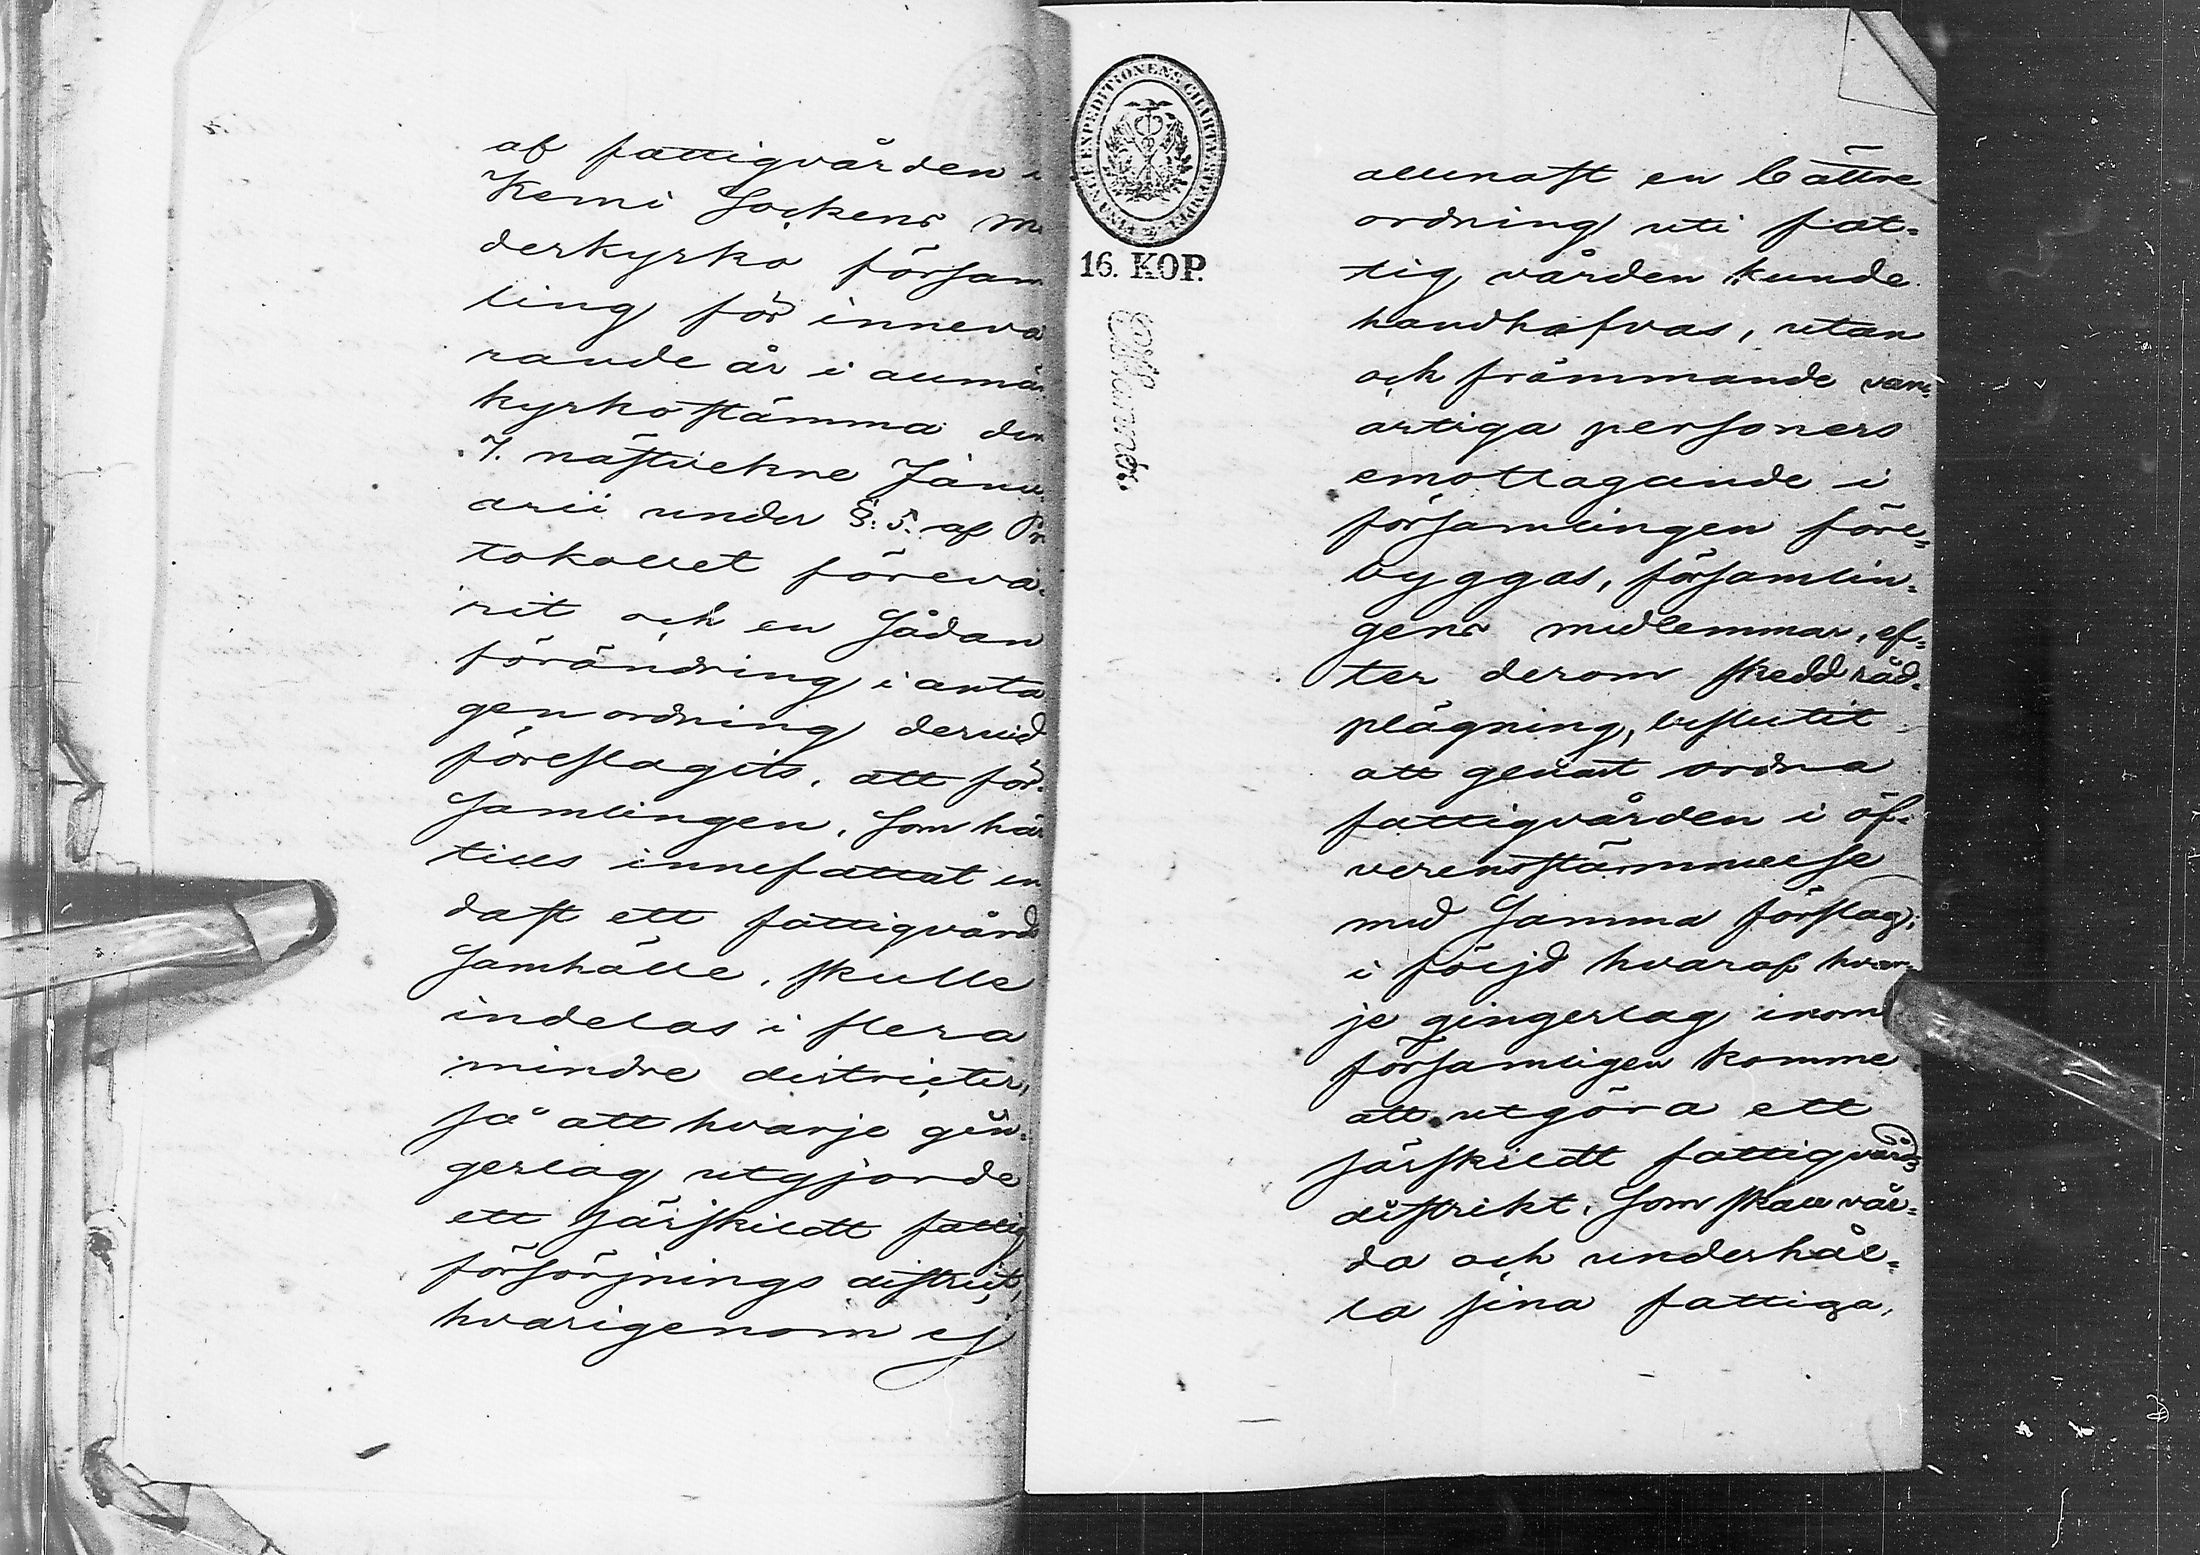 af fattigvården i
Kemi Sockens mo
derkyrko försam
ling för inneva
rande år i allmän
kyrkostämma den
7. nästvekne Janu
arii under §: 5. af Pro
tokollet föreva-
rit och en sådan
förändring i anta
gen ordning dervid
föreslagits, att för-
samlingen, som här
tills innefattat en
dast ett fattigvårds
samhälle, skulle
indelas i flera
mindre districter,
så att hvarje gin-
gerlag utgjorde
ett särskildt fattig
försörjnings district,
hvarigenom ej
FINANCE EXPEDITIONENS CHARTÆ SIGILLATÆ STÄMPEL
16. KOP.
allenast en bättre
ordning uti fat-
tig vården kunde
handhafvas, utan
och främmande van-
artiga personers
emottagande i
församlingen före-
byggas, församlin-
gens medlemmar, ef-
ter derom skedd råd-
plägning, beslutit
att genast ordna
fattigvården i öf-
verensstämmelse
med samma förslag,
i följd hvaraf hvar-
je gingerlag inom
församligen komme
att utgöra ett
särskildt fattigvårds
distrikt, som skall vår-
da och underhål-
la sina fattiga,